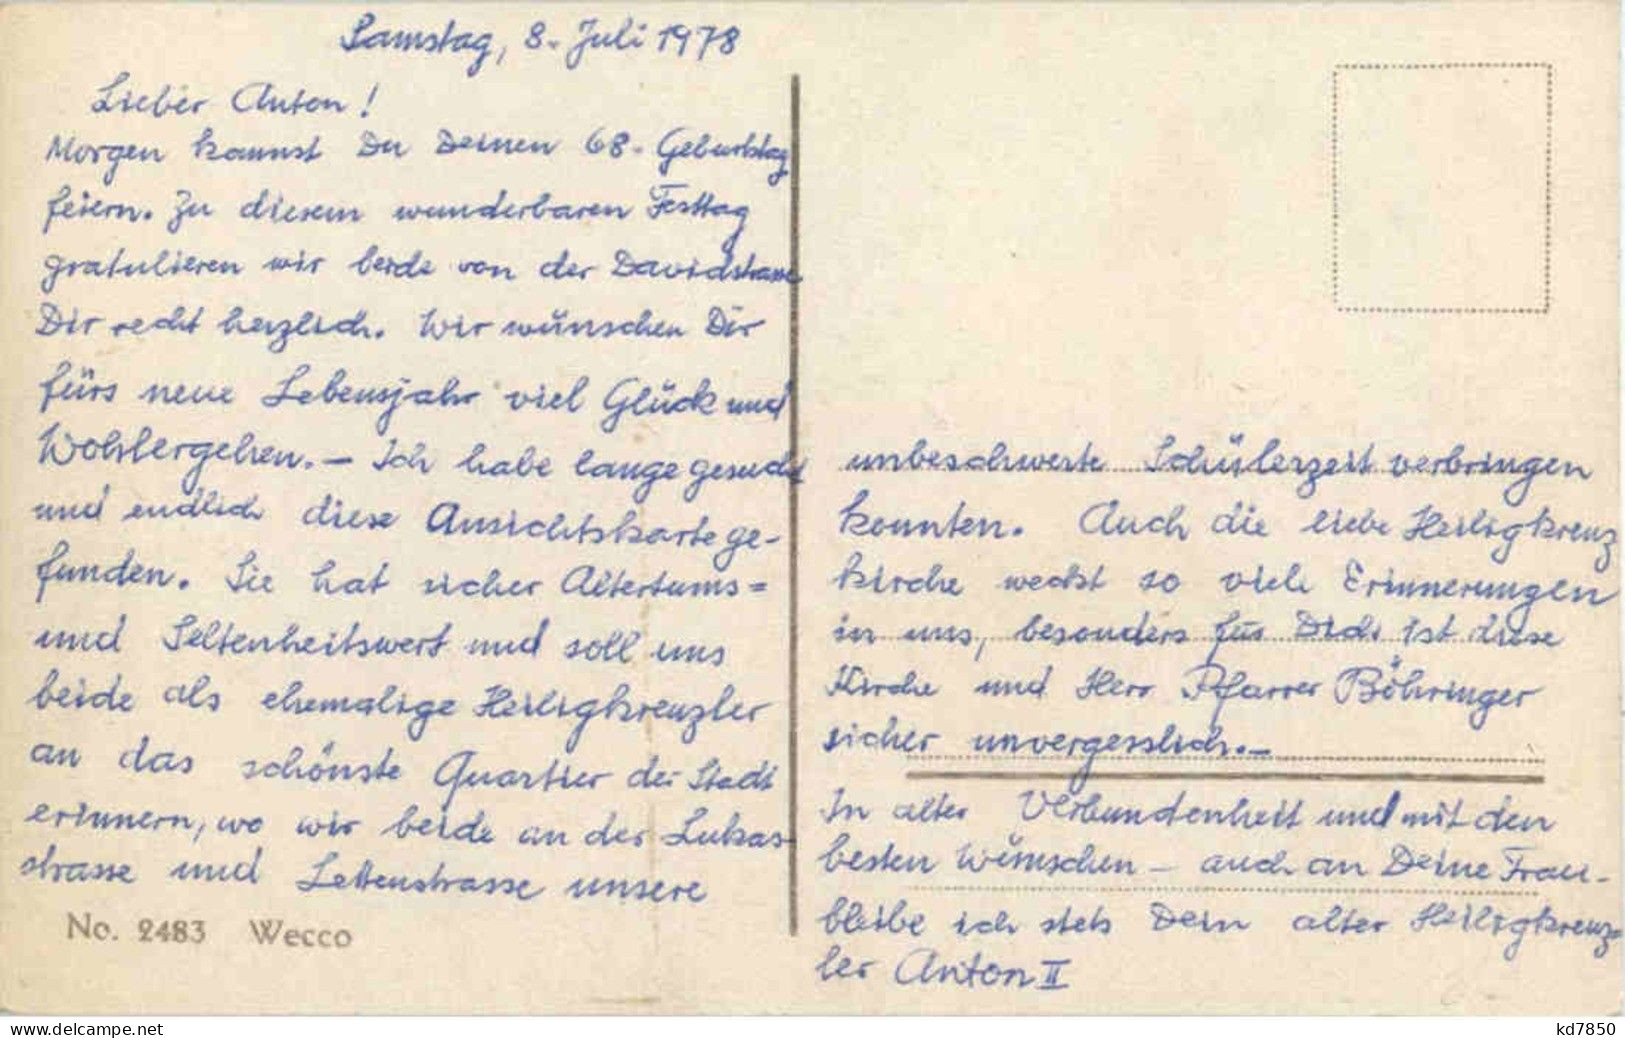 Samstag, 8. Juli 1978
Lieber Anton!
Morgen kannst Du Deinen 68. Geburtstag
feiern. Zu diesem wunderbaren Festtag
gratulieren wir beide von der Davidstrasse
Dir recht herzlich. Wir wünschen Dir
fürs neue Lebensjahr viel Glück und
Wohlergehen. — Ich habe lange gesucht
und endlich diese Ansichtskarte ge-
funden. Sie hat sicher Altertums=
und Seltenheitswert und soll uns
beide als ehemalige Heiligkreuzler
an das schönste Quartier der Stadt
erinnern, wo wir beide an der Lukas-
strasse und Lettenstrasse unsere
No. 2483 Wecco
unbeschwerte Schülerzeit verbringen
konnten. Auch die liebe Heiligkreuz
kirche weckt so viele Erinnerungen
in uns, besonders für Dich ist diese
Kirche und Herr Pfarrer Böhringer
sicher unvergesslich. —
In alter Verbundenheit und mit den
besten Wünschen — auch an Deine Frau -
bleibe ich stets Dein alter Heiligkreuz-
ler Anton II
kd7850
www.delcampe.net